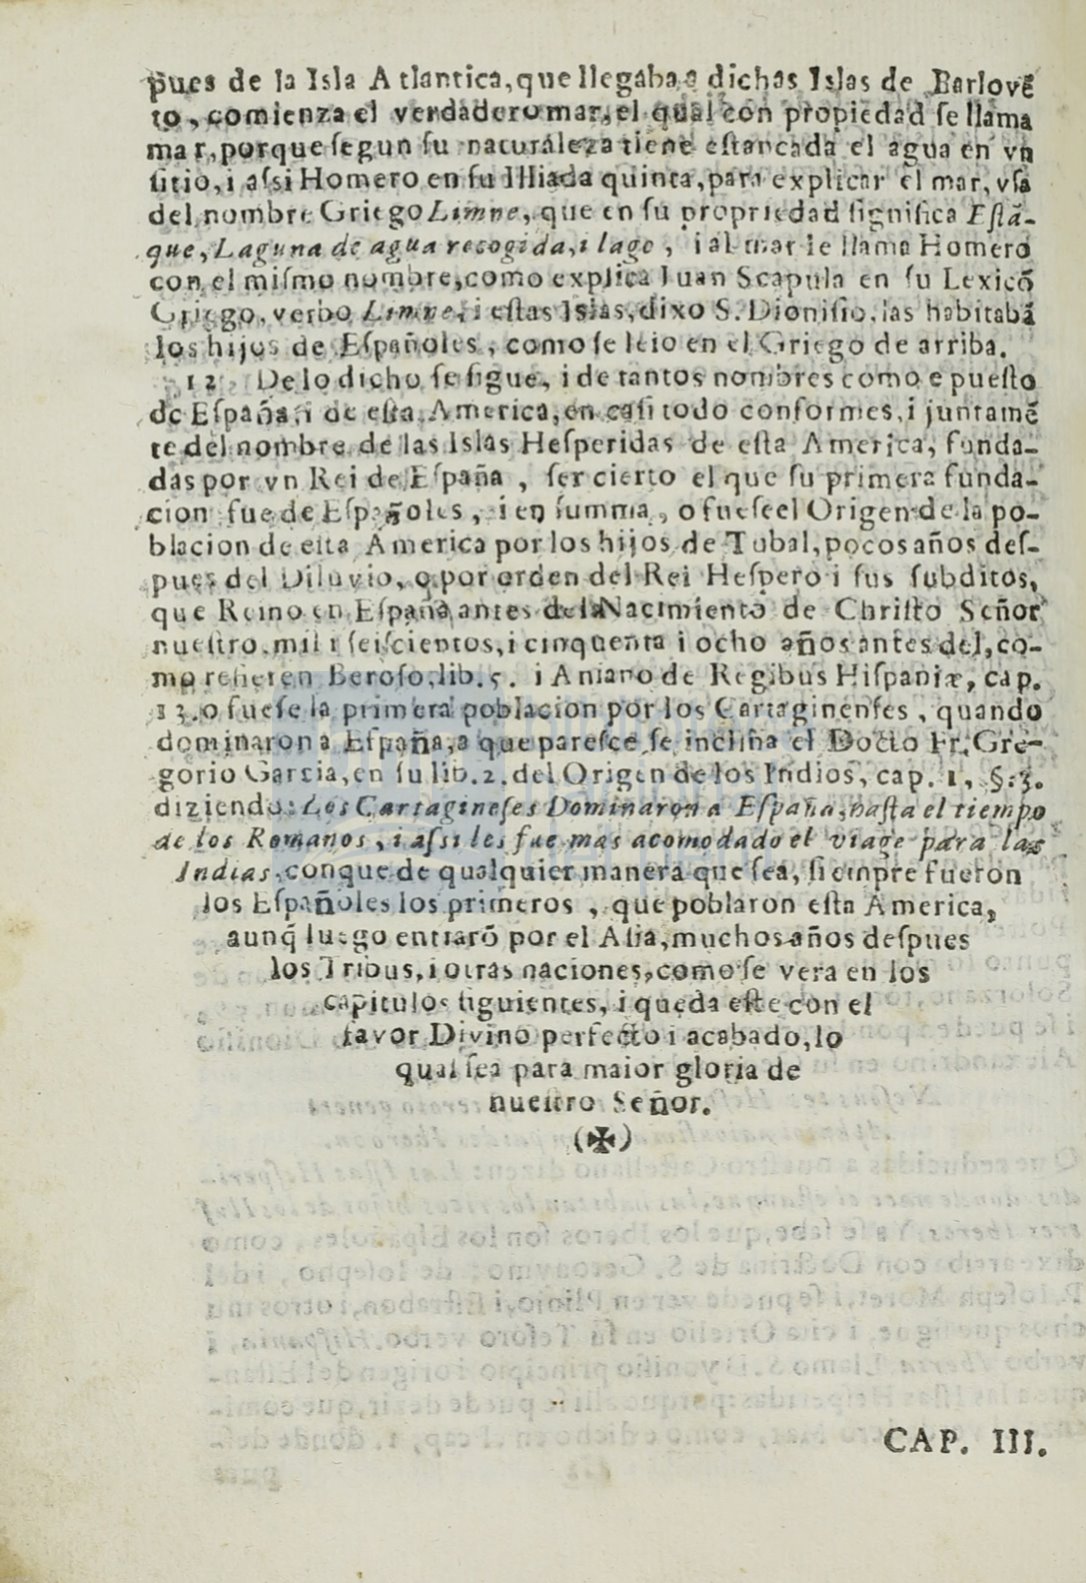 pues de la Isla Atlantica, que llegaba a dichas Islas de Barlovẽ
to, comienza el verdadero mar, el qual con propiedad ſe llama
mar, porque ſegun ſu naturáleza tiene eſtancada el agua en vn
ſitio, i aſsi Homero en ſu Illiada quinta, para explicar el mar, vſa
del nombre Griego Limne, que en ſu propriedad ſignifica Eſtã-
que, Laguna de agua recogida, i lago, i al mar le llama Homero
con el miſmo nombre, como explica Juan Scapula en ſu Lexicõ
Griego, verbo Limne, i eſtas Islas, dixo S. Dioniſio, las habitabã
los hijos de Eſpañoles, como ſe leio en el Griego de arriba.
12 De lo dicho ſe ſigue, i de tantos nombres como e pueſto
de Eſpaña, i de eſta America, en caſi todo conformes, i juntamẽ
te del nombre de las Islas Heſperidas de eſta America, funda-
das por vn Rei de Eſpaña, ſer cierto el que ſu primera funda-
cion fue de Eſpañoles, i en ſumma, o fueſe el Origen de la po-
blacion de eſta America por los hijos de Tubal, pocos años deſ-
pues del Diluvio, o por orden del Rei Heſpero i ſus ſubditos,
que Reino en Eſpaña antes del Nacimiento de Chriſto Señor
nueſtro, mil i ſeiſcientos, i cinquenta i ocho años antes del, co-
mo refieren Beroſo, lib. 5. i Aniano de Regibus Hiſpaniæ, cap.
13. o fueſe la primera poblacion por los Cartaginenſes, quando
dominaron a Eſpaña, a que pareſce ſe inclina el Docto Fr. Gre-
gorio Garcia, en ſu lib. 2. del Origen de los Indios, cap. 1, §. 3.
diziendo: Los Cartagineſes Dominaron a Eſpaña, haſta el tiempo
de los Romanos, i aſsi les fue mas acomodado el viage para las
Indias, conque de qualquier manera que ſea, ſiempre fueron
los Eſpañoles los primeros, que poblaron eſta America,
aunq̃ luego entrarõ por el Aſia, muchos años deſpues
los Tribus, i otras naciones, como ſe vera en los
capitulos ſiguientes, i queda eſte con el
favor Divino perfecto i acabado, lo
qual ſea para maior gloria de
nueſtro Señor.
(✠)
CAP. III.